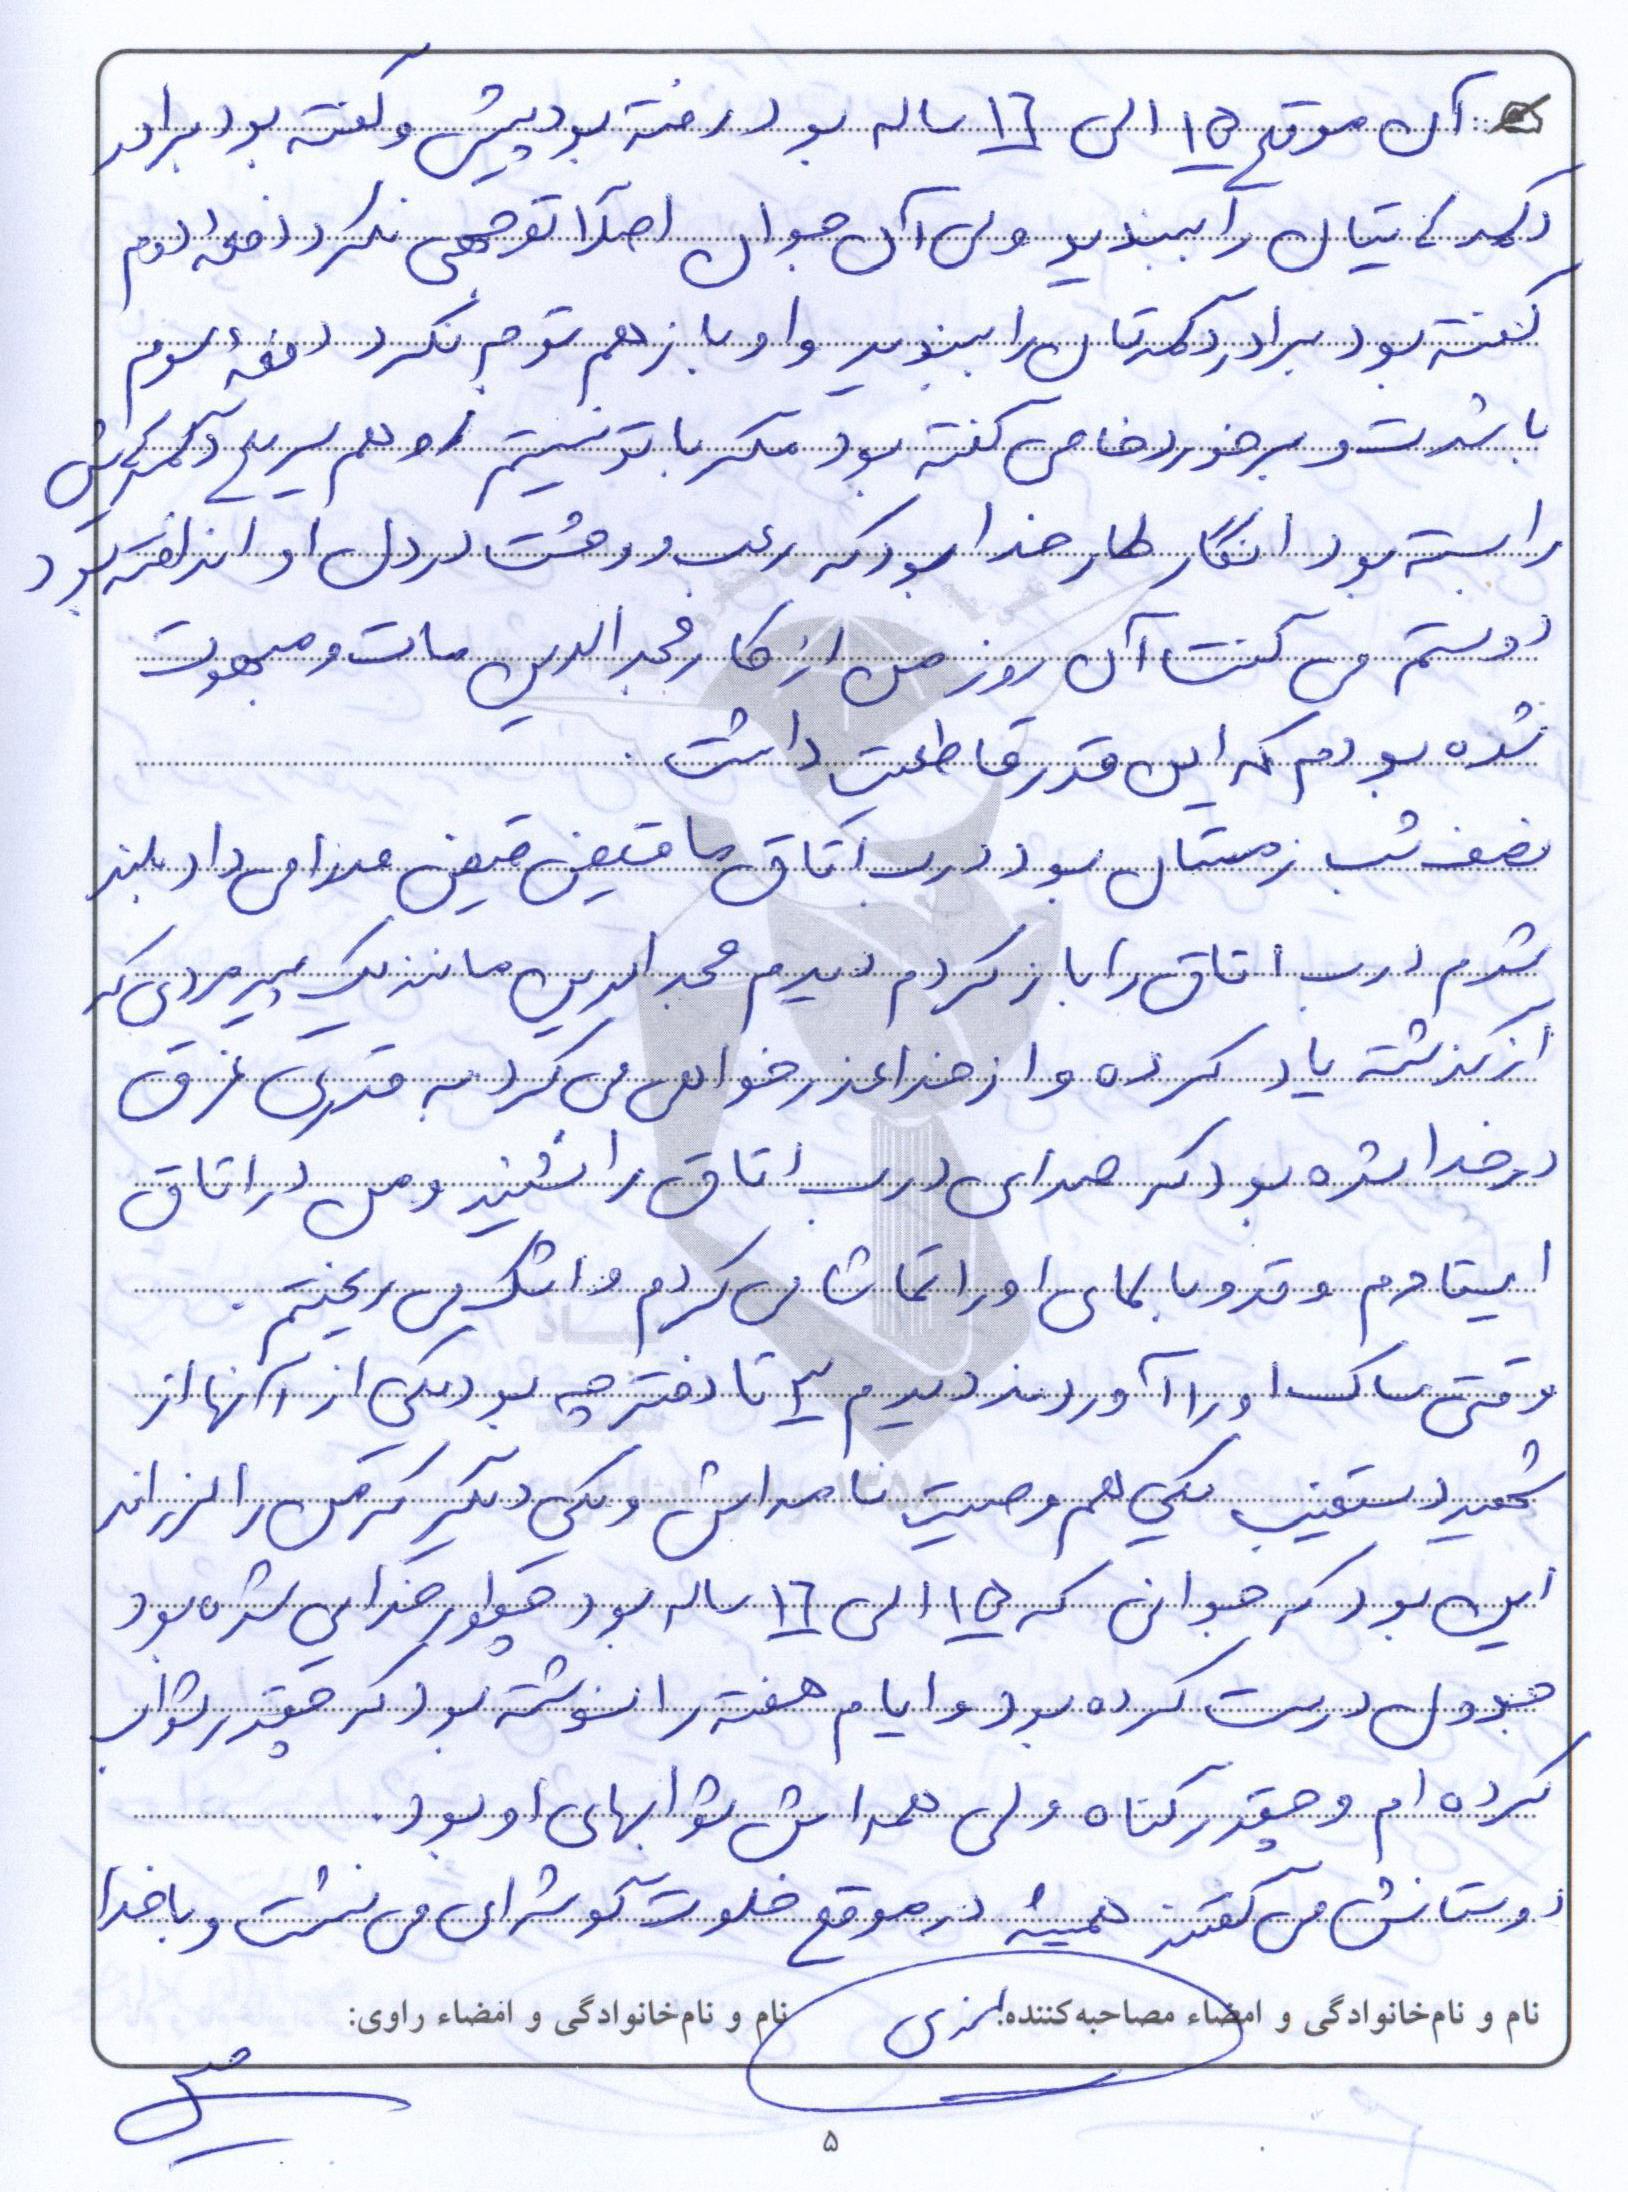 آن موقع ۱۵ الی ۱۶ ساله بود رفته بود پیش و گفته بود برادر
دکمه‌یتان را ببندید ولی آن جوان اصلاً توجهی نکرد دفعه دوم
گفته بود برادر دکمه‌تان را ببندید و او باز هم توجه نکرد دفعهٔ سوم
با شدت و برخورد خاص گفته بود مگر با تو نیستم او هم سریع دکمه‌اش
را بسته بود انگار کار خدا بود که رعب و وحشت در دل او انداخته بود
دوستم می گفت آن روز من از کار مجدالدین مات و مبهوت
شده بودم که این قدر قاطعیت داشت.
نصف شب زمستان بود درب اتاق ما قیض قیض صدا می داد بلند
شدم درب اتاق را باز کردم دیدم مجدالدین مانند یک پیر مردی که
از گذشته یاد کرده و از خدا عذر خواهی می کرد به قدری غرق
در خدا شده بود که صدای درب اتاق را نشنید و من در اتاق
ایستادم و قد و بالای او را تماشا می کردم و اشک می ریختم.
وقتی ساک او را آوردند دیدم ۳ تا دفترچه بود یکی از آنها از
شهید دستغیب یکی هم وصیت نامه‌اش و یکی دیگر که من را لرزاند
این بود که جوانی که ۱۵ الی ۱۶ ساله بود چطور خدایی شده بود
جدول درست کرده بود و ایام هفته را نوشته بود که چقدر ثواب
کرده ام و چقدر گناه ولی همه‌اش ثوابهای او بود.
دوستانش می گفتند همیشه در موقع خلوت گوشه‌ای می نشست و با خدا
نام و نام‌خانوادگی و امضاء مصاحبه‌کننده:
نام و نام‌خانوادگی و امضاء راوی:
۵